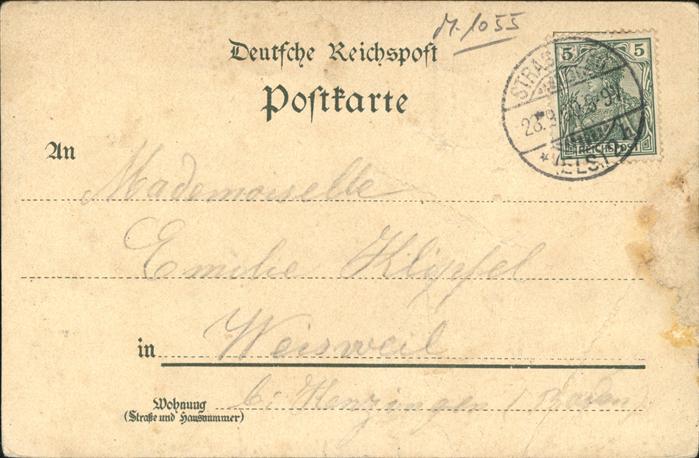 M. 1055
Deutsche Reichspost
Postkarte
5 5
REICHSPOST
STRASSBURG
23.9. 5-
* (ELS.)
An
Mademoiselle
Emilie Klipfel
in Weisweil
Wohnung
(Straße und Hausnummer)
b. Kenzingen (Baden)